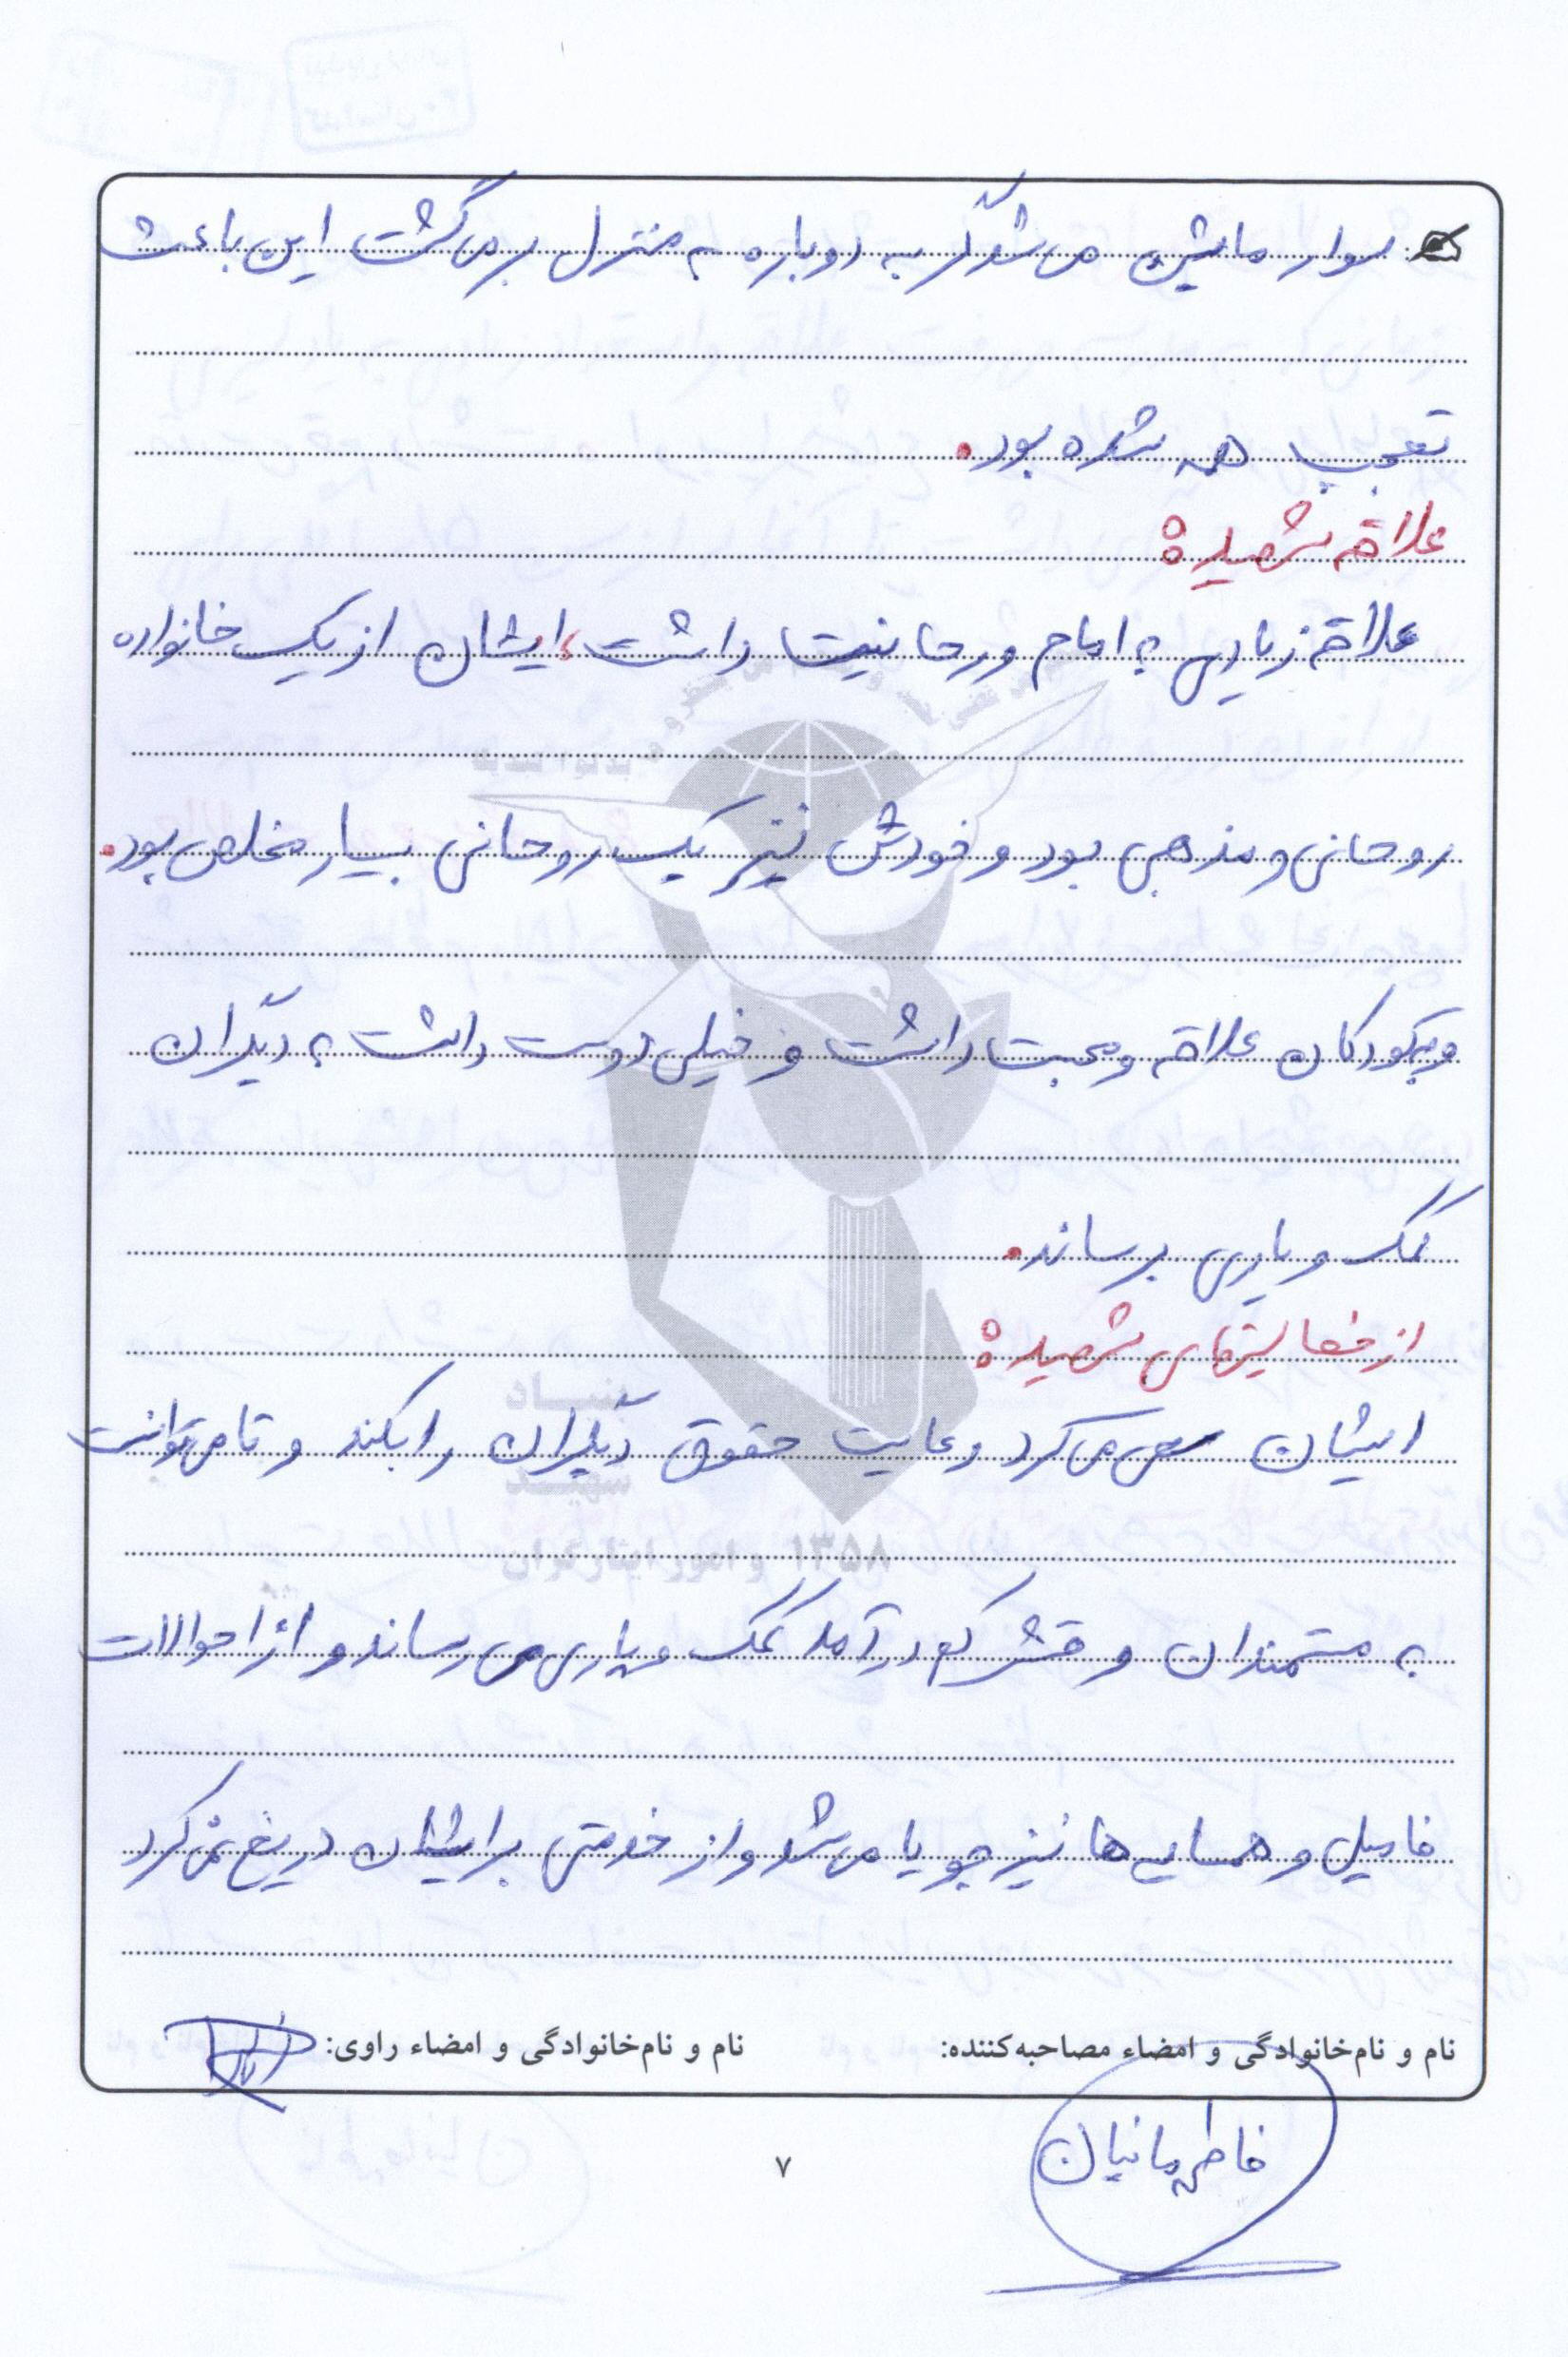 سوار ماشین می شد گربه دوباره به منزل بر می گشت این باعث
تعجب همه شده بود.
علاقه شهید:
علاقه زیادی به امام و رحانیت داشت، ایشان از یک خانواده
روحانی و مذهبی بود و خودش نیز یک روحانی بسیار مخلص بود.
و بکودکان علاقه و محبت داشت و خیلی دوست داشت به دیگران
کمک و یاری برساند.
از فعالیتهای شهید:
ایشان سعی می کرد رعایت حقوق دیگران را بکند و تا می توانست
به مستمندان و قشر کم درآمد کمک و یاری می رساند و از احوالات
فامیل و همسایه ها نیز جویا می شد و از خدمتی برایشان دریغ نمی کرد
نام و نام‌خانوادگی و امضاء مصاحبه‌کننده:
نام و نام‌خانوادگی و امضاء راوی:
۷
بنیاد
شهید
و امور ایثارگران
۱۳۵۸